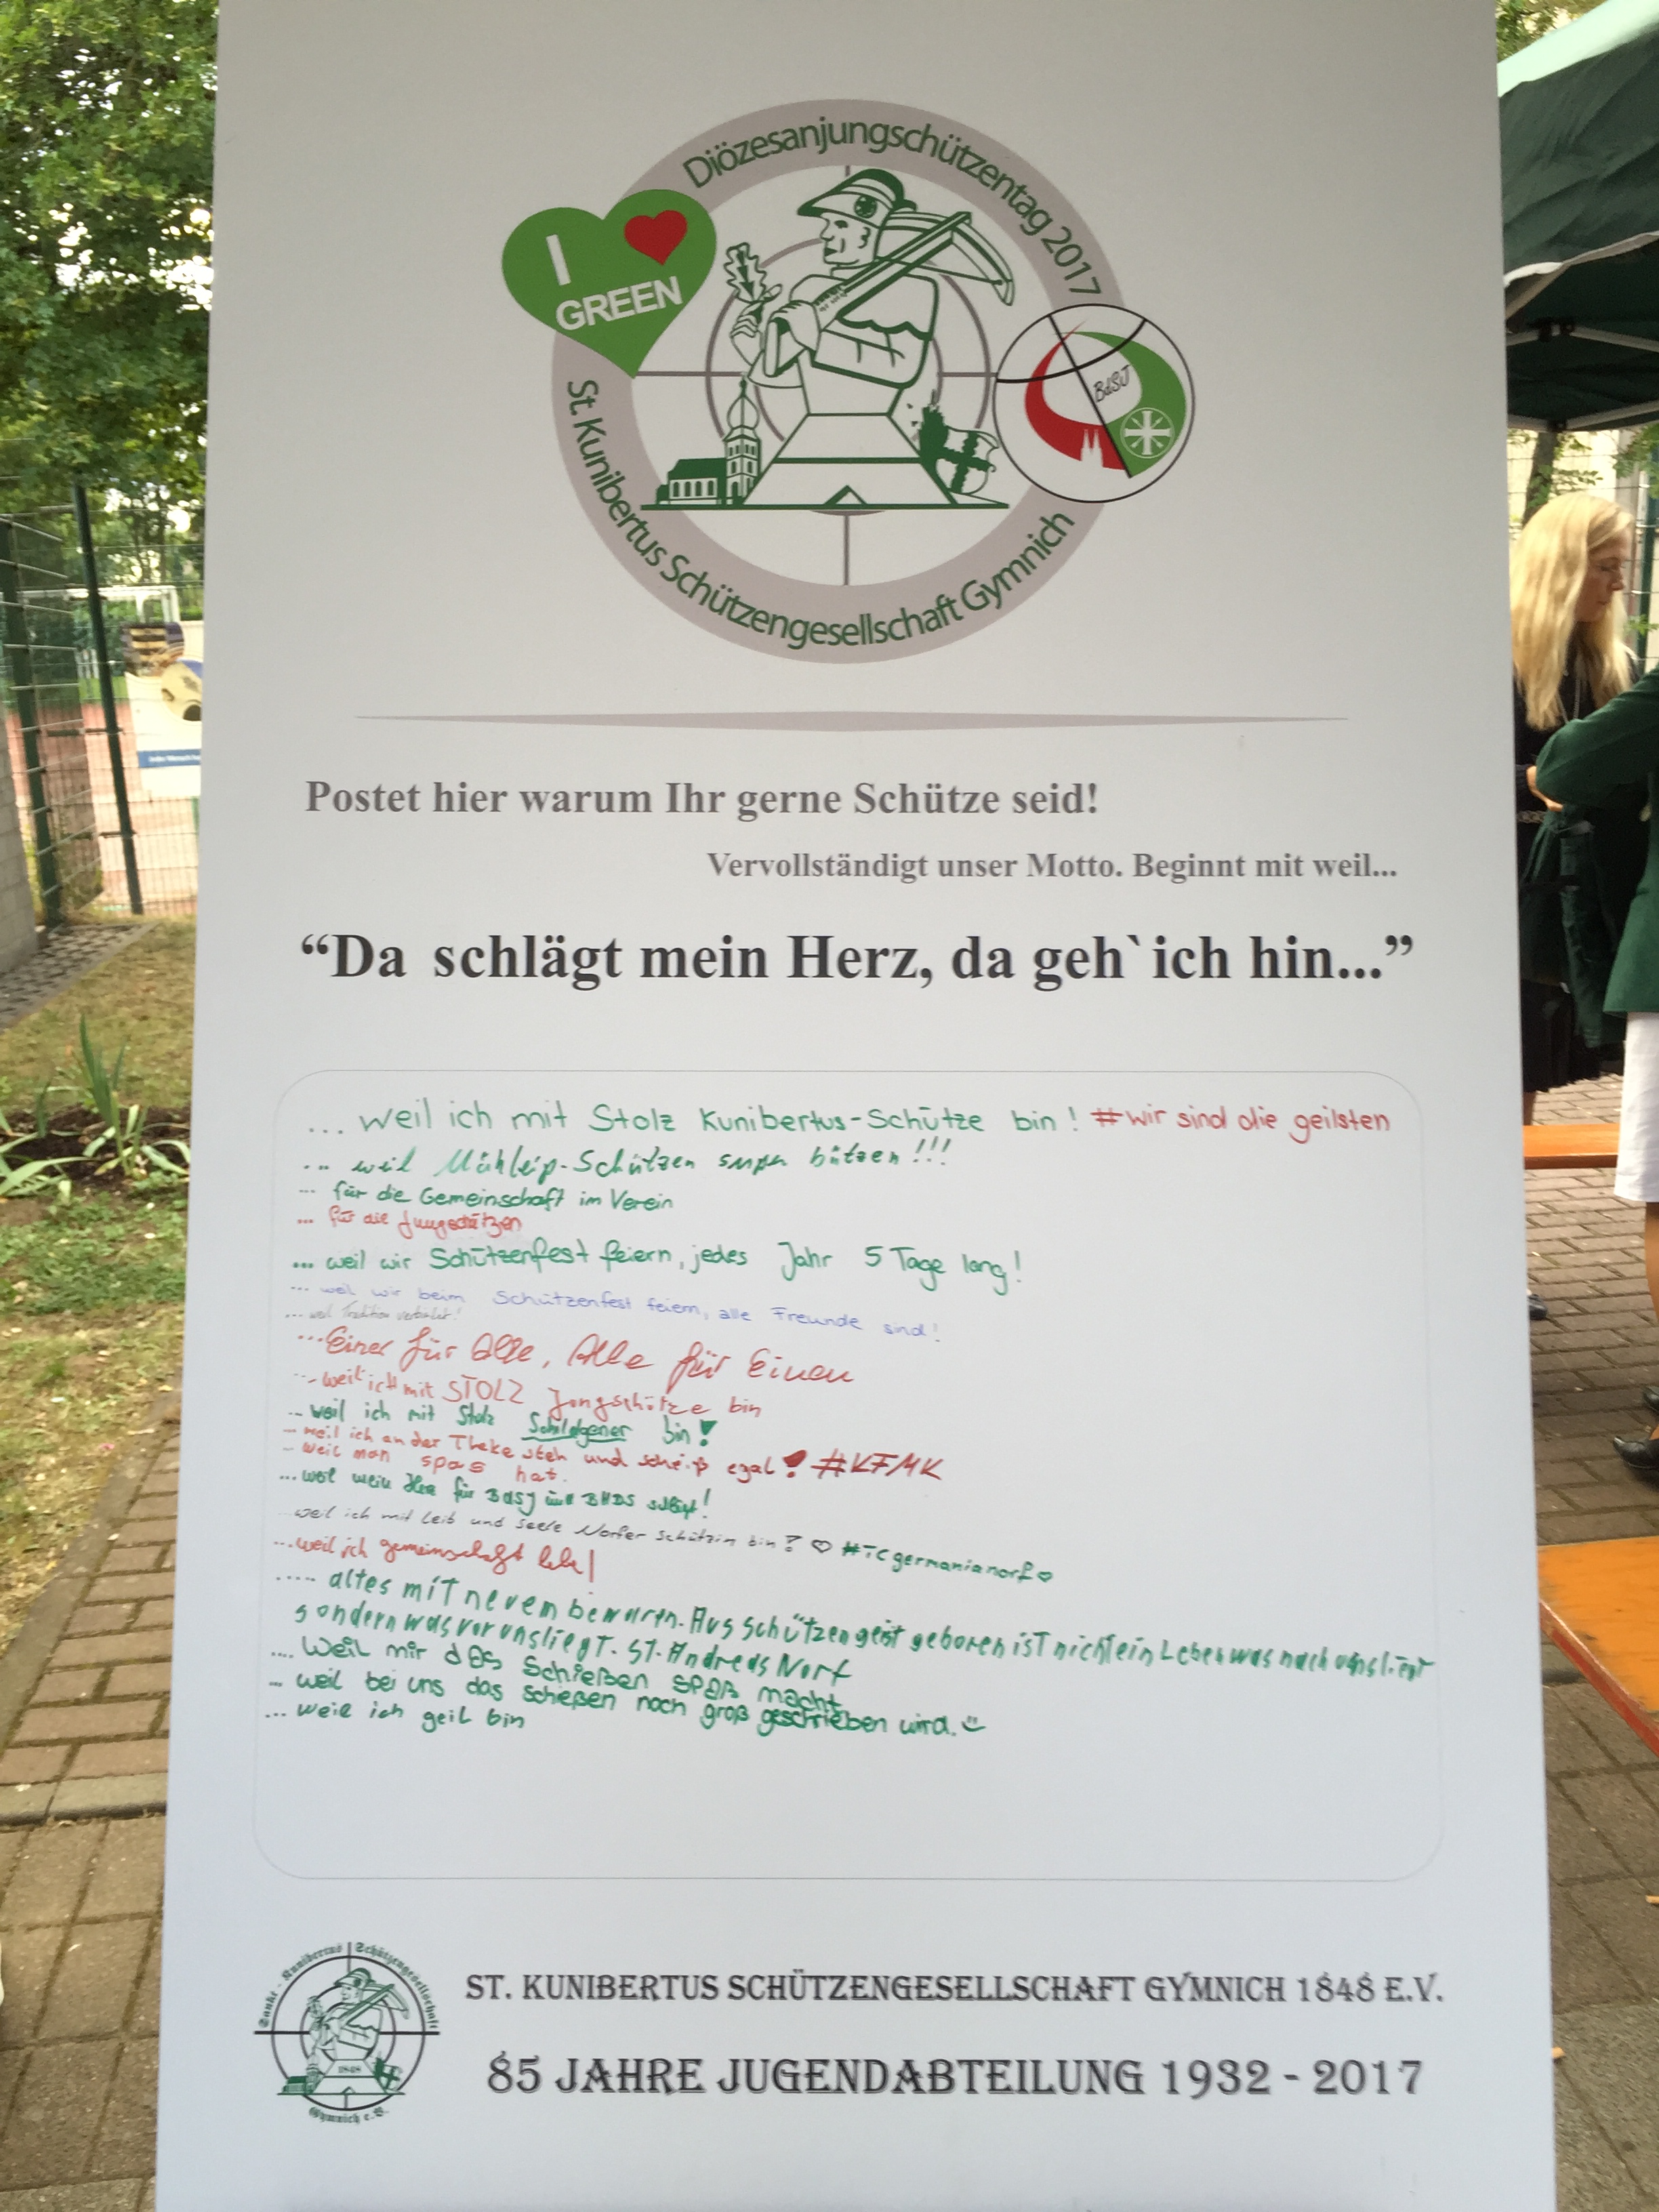 Diözesanjungschützentag 2017
I
GREEN
BdSJ
St. Kunibertus Schützengesellschaft Gymnich
Postet hier warum Ihr gerne Schütze seid!
Vervollständigt unser Motto. Beginnt mit weil...
“Da schlägt mein Herz, da geh`ich hin...”
... weil ich mit Stolz Kunibertus-Schütze bin! #wir sind die geilsten
... weil Schützen super bützen!!!
... für die Gemeinschaft im Verein
... für die Jungschützen
... weil wir Schützenfest feiern, jedes Jahr 5 Tage lang!
... weil wir beim Schützenfest feiern, alle Freunde sind!
... weil Tradition verbindet!
... Einer für Alle, Alle für Einen
... weil ich mit STOLZ Jungschütze bin
... weil ich mit Stolz Schildgener bin!
... weil ich an der Theke steh und scheiß egal! #KFMK
... weil man spas hat.
... weil mein Herz für BdSJ und BHDS schlägt!
... weil ich mit Leib und Seele Norfer Schützin bin! ♡ #TCgermanianorf♡
... weil ich gemeinschaft lebe!
..... altes miT neuem bewaren. Aus Schützengeist geboren isT nicht ein Leben was nach uns liegt
sondern was vor uns liegT. ST. Andreas Norf
.... Weil mir das Schießen SPAß macht
... weil bei uns das schießen noch groß geschrieben wird. ☺
... weil ich geil bin
Sankt - Kunibertus Schützengesellschaft
1848
Gymnich e.V.
ST. KUNIBERTUS SCHÜTZENGESELLSCHAFT GYMNICH 1848 E.V.
85 JAHRE JUGENDABTEILUNG 1932 - 2017